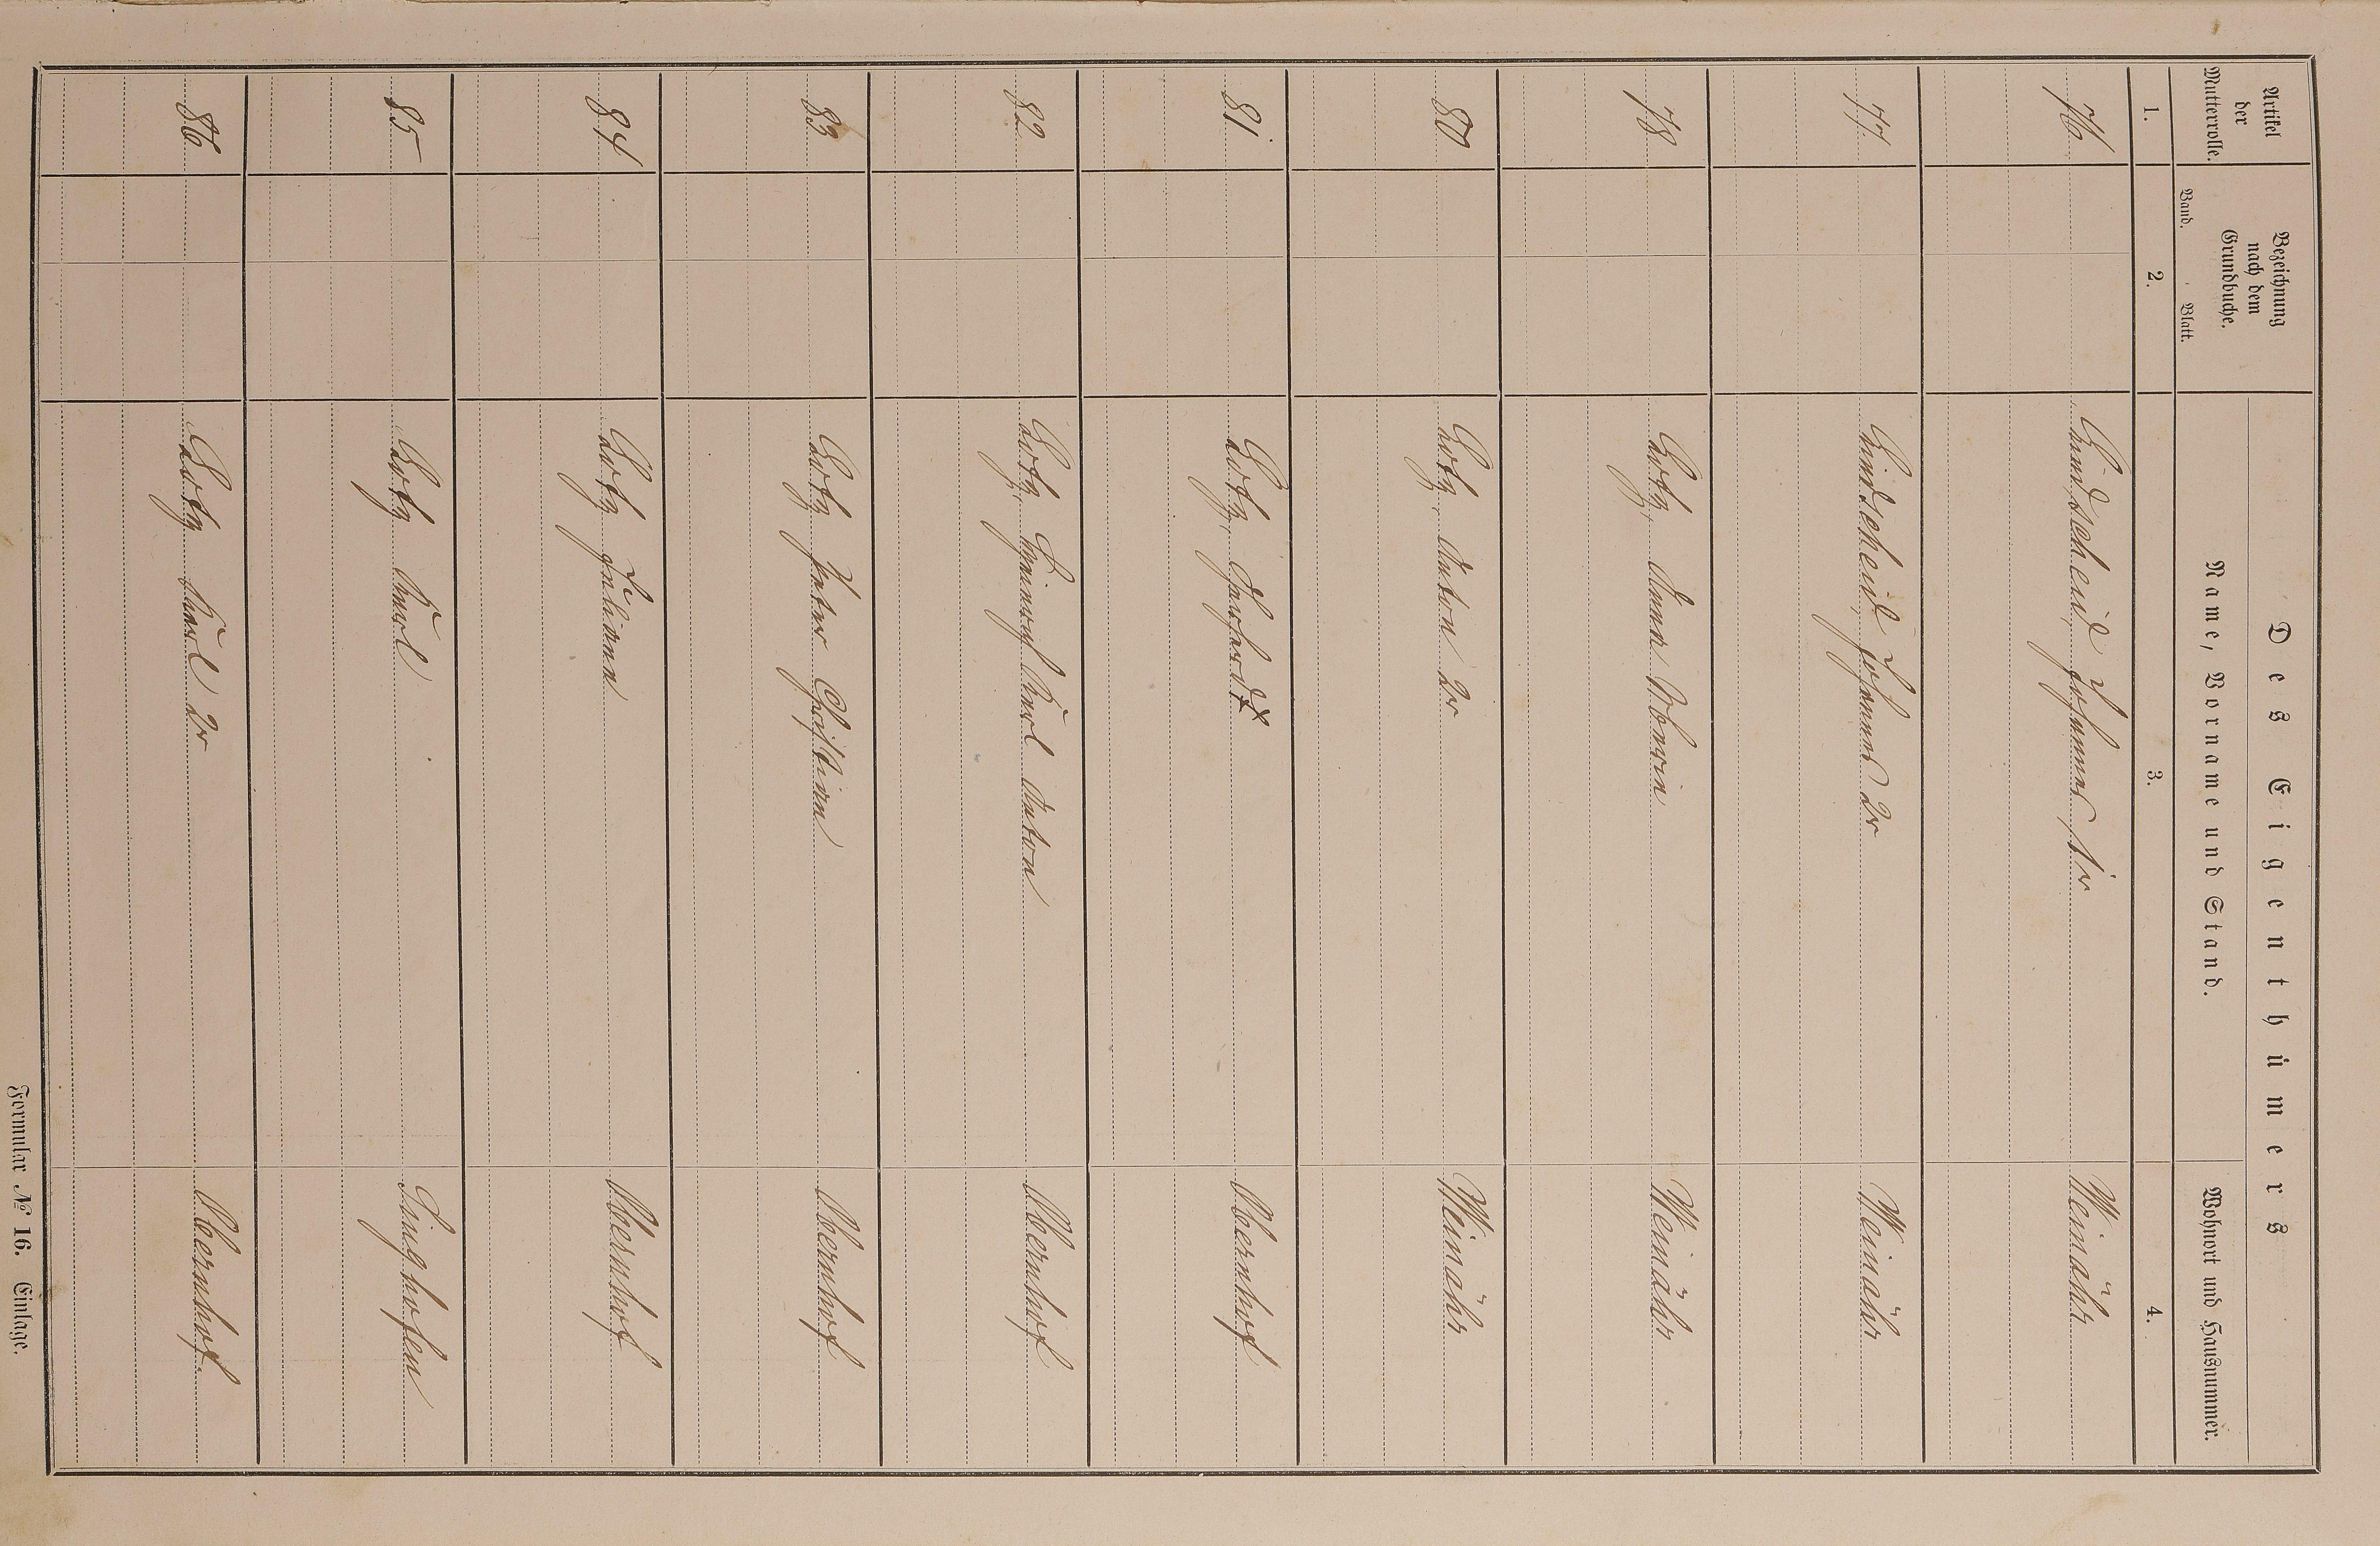 Artikel der Mutterrolle.
Bezeichnung nach dem Grundbuche.
Band. Blatt.
Des Eigenthümers
Name, Vorname und Stand.
Wohnort und Hausnummer.
1. 2. 3. 4.
76 Lindscheid, Johannes 1r Weinähr
77. Lindscheid, Johannes 2r Weinähr
78 Lotz, Anna Maria Weinähr
80 Lotz, Anton 2r Weinähr
81. Lotz, Gerhard Obernhof
82 Lotz, Heinrich Karl Anton Obernhof
83 Lotz Peter Christian Obernhof
84 Lotz Juliana Obernhof
85 Lotz Karl Singhofen
86 Lotz Karl 2r Obernhof.
Formular № 16. Einlage.